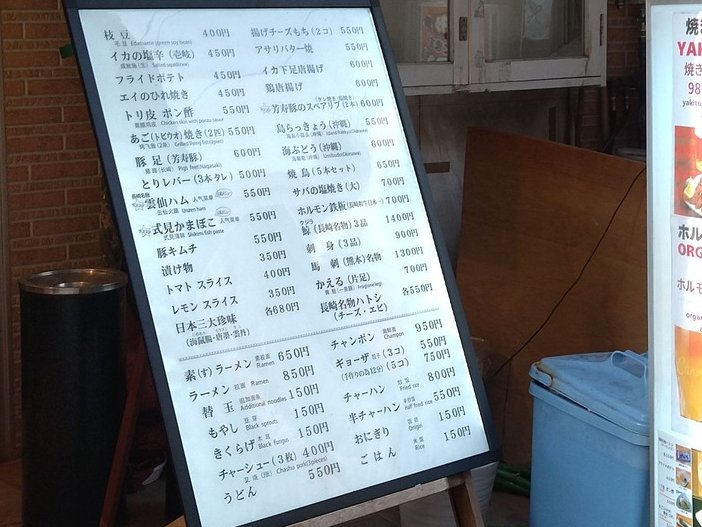 枝豆 400円
毛豆 Edamame (green soy bean)
イカの塩辛(壱岐) 450円
フライドポテト 450円
エイのひれ焼き 450円
トリ皮 ポン酢 550円
Chicken skin with ponzu sauce
あご(トビウオ)焼き(2匹) 550円
烤飞鱼(2条) Grilled flying fish(2pieces)
豚足(芳寿豚) 600円
猪蹄(长崎) Pigs feet(Nagasaki)
とりレバー(3本タレ) 500円
長崎名物
雲仙ハム 人気菜単 550円
云仙火腿 Unzen ham
式見かまぼこ 人気菜単 550円
式見蒲鉾 Shikimi fish paste
豚キムチ 550円
漬け物 350円
トマトスライス 400円
レモンスライス 350円
日本三大珍味 各680円
(海鼠腸・唐墨・雲丹)
揚げチーズもち(2コ) 550円
アサリバター焼 550円
イカ下足唐揚げ 600円
鶏唐揚げ 600円
芳寿豚のスペアリブ(2本) 600円
島らっきょう(沖縄) 550円
海ぶどう(沖縄) 600円
海葡萄(沖縄) Umibudo(Okinawa)
焼鳥(5本セット) 650円
サバの塩焼き(大) 700円
ホルモン鉄板(長崎和牛日本一) 700円
クジラ
鯨(長崎名物)3品 1400円
刺身(3品) 900円
馬刺(熊本)名物 1300円
かえる(片足) 700円
長崎名物ハトシ 各550円
(チーズ・エビ)
素(す)ラーメン 素拉面 Ramen 650円
ラーメン 拉面 Ramen 850円
替玉 追加面条 Additional noodles 150円
もやし 豆芽 Black sprouts 150円
きくらげ 木耳 Black Fungus 150円
チャーシュー(3枚) 400円
叉烧(3张) Chashu pork(3pieces)
うどん 550円
チャンポン 海鮮面 Champon 950円
ギョーザ 饺子(3コ) 550円
(手作りの為12分)(5コ) 750円
チャーハン 炒饭 Fried rice 800円
半チャーハン 半炒飯 Half fried rice 550円
おにぎり 饭团 Onigiri 150円
ごはん 米饭 Rice 150円
焼き
YAK
焼き
98
yakito
ホル
ORG
ホルモ
organ